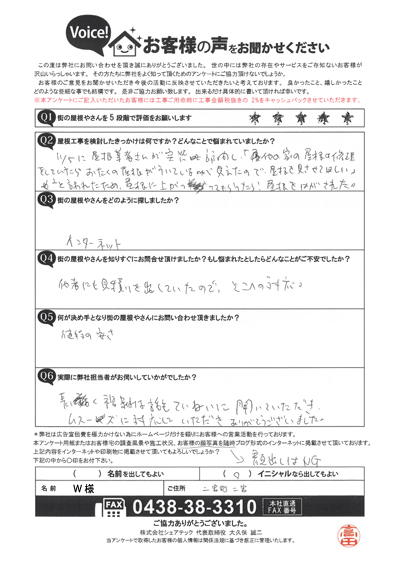 Voice!
お客様の声をお聞かせください
この度は弊社にお問い合わせを頂き誠にありがとうございました。世の中には弊社の存在やサービスをご存知ないお客様が
沢山いらっしゃいます。その方たちに弊社をよく知って頂くためのアンケートにご協力頂けないでしょうか。
お客様のご意見をお聞かせいただき今後の活動に反映させていただきたいと考えております。良かったこと、嬉しかったこと
どのような些細な事でも結構です。是非ご協力お願い致します。出来るだけ具体的に書いて頂ければ幸いです。
※本アンケートにご記入いただいたお客様には工事ご用命時に工事金額税抜きの2%をキャッシュバックさせていただきます。
Q1 街の屋根やさんを5段階で評価をお願いします
★ ★ ★ ★ ★
Q2 屋根工事を検討したきっかけは何ですか?どんなことで悩まれていましたか?
に屋根業者さんが突然訪問し、
していたらおたくの屋根がういているのが見えたので、屋根を見させてほしい」
と言われたため、屋根に上がってもらったら!屋根をはがされた。
Q3 街の屋根やさんをどのように探しましたか?
インターネット
Q4 街の屋根やさんを知りすぐにお問合せ頂けましたか?もし悩まれたとしたらどんなことがご不安でしたか?
他者にも見積りを出していたので、
Q5 何が決め手となり街の屋根やさんにお問い合わせ頂きましたか?
値段の安さ
Q6 実際に弊社担当者がお伺いしていかがでしたか?
ていねいに聞いていただき、
スムーズに対応していただきありがとうございました。
※弊社は広告宣伝費を極力かけない為にホームページだけを頼りにお客様への営業活動を行っております。
本アンケート用紙またはお客様宅の調査風景や施工状況、お客様の顔写真を随時ブログ形式のインターネットに掲載させて頂いております。
上記内容をインターネットや印刷物に掲載させて頂いてもよろしいでしょうか?
下記の中から○印をお付下さい。
顔出しはNG
( ) 名前を出してもよい
( ○ ) イニシャルなら出してもよい
名前 W様
ご住所 二宮町二宮
FAX 0438-38-3310 本社直通 FAX番号
ご協力ありがとうございました。
株式会社シェアテック 代表取締役 大久保 誠二
当アンケートで取得したお客様の個人情報は関係法規に基づき厳正に管理いたします。